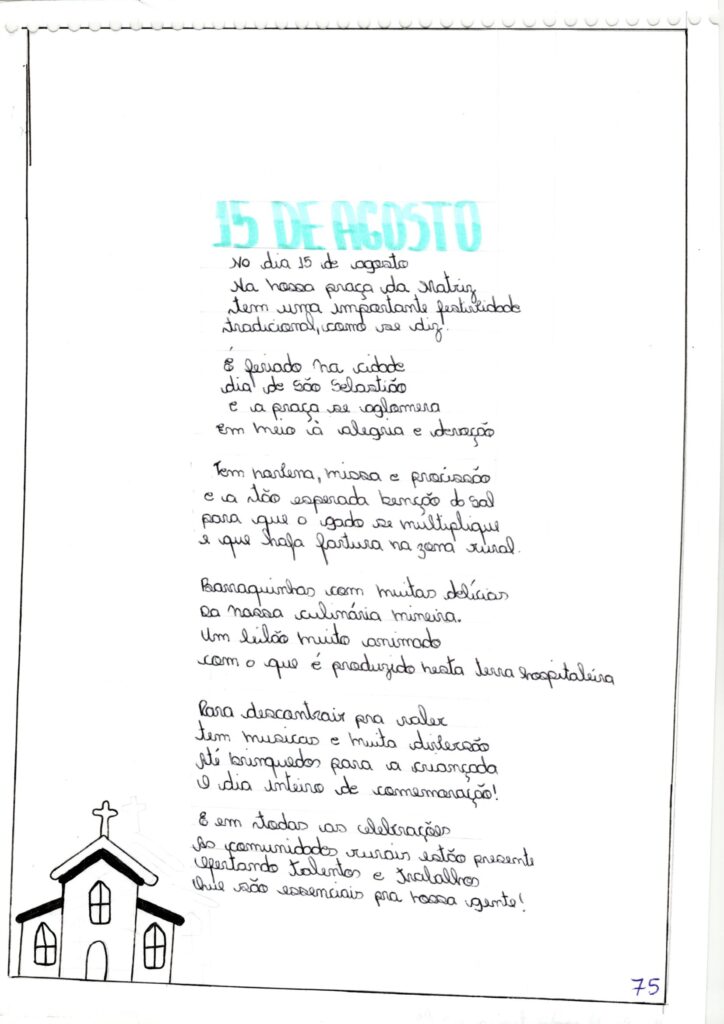 15 DE AGOSTO
No dia 15 de agosto
Na nossa praça da Matriz
tem uma importante festividade
tradicional, como se diz.
É feriado na cidade
dia de São Sebastião
e a praça se aglomera
Em meio à alegria e devoção
Tem novena, missa e procissão
e a tão esperada benção do sal
para que o gado se multiplique
e que haja fartura na zona rural.
Barraquinhas com muitas delícias
Da nossa culinária mineira.
Um leilão muito animado
com o que é produzido nesta terra hospitaleira
Para descontrair pra valer
tem musicas e muita diversão
Até brinquedos para a criançada
O dia inteiro de comemoração!
E em todas as celebrações
As comunidades rurais estão presente
Ofertando talentos e trabalhos
Que são essenciais pra nossa gente!
75